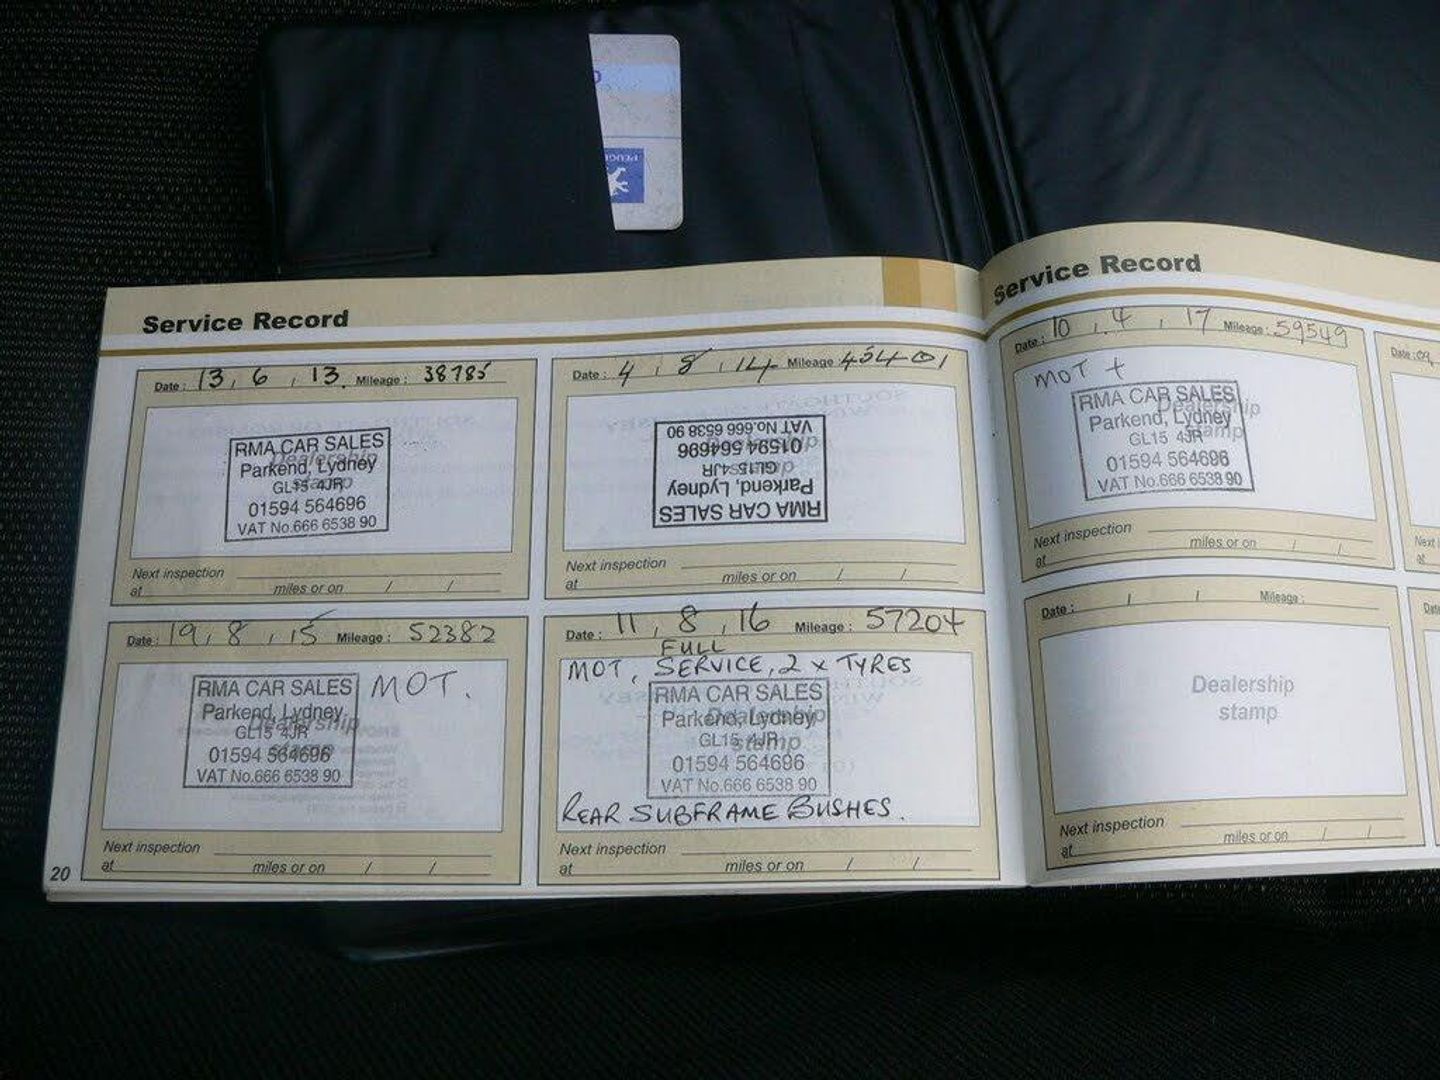 PEUG
Service Record
Date: 13, 6, 13. Mileage: 38785
RMA CAR SALES
Parkend, Lydney
GL15 4JR
01594 564696
VAT No.666 6538 90
Dealership
stamp
Next inspection
at miles or on / /
Date: 4, 8, 14 Mileage
RMA CAR SALES
Parkend, Lydney
GL15 4JR
01594 564696
VAT No.666 6538 90
Next inspection
at miles or on / /
Date: 19, 8, 15 Mileage: 52382
MOT.
RMA CAR SALES
Parkend, Lydney
GL15 4JR
01594 564696
VAT No.666 6538 90
Dealership
stamp
Next inspection
at miles or on / /
Date: 11, 8, 16 Mileage: 57204
FULL
MOT, SERVICE, 2 x TYRES
RMA CAR SALES
Parkend, Lydney
GL15 4JR
01594 564696
VAT No.666 6538 90
Dealership
stamp
REAR SUBFRAME BUSHES.
Next inspection
at miles or on / /
20
Service Record
Date: 10, 4, 17 Mileage: 59549
MOT +
RMA CAR SALES
Parkend, Lydney
GL15 4JR
01594 564696
VAT No.666 6538 90
Dealership
stamp
Next inspection
at miles or on / /
Date: Mileage:
Dealership
stamp
Next inspection
at miles or on / /
Date:
Next
at
Next
at